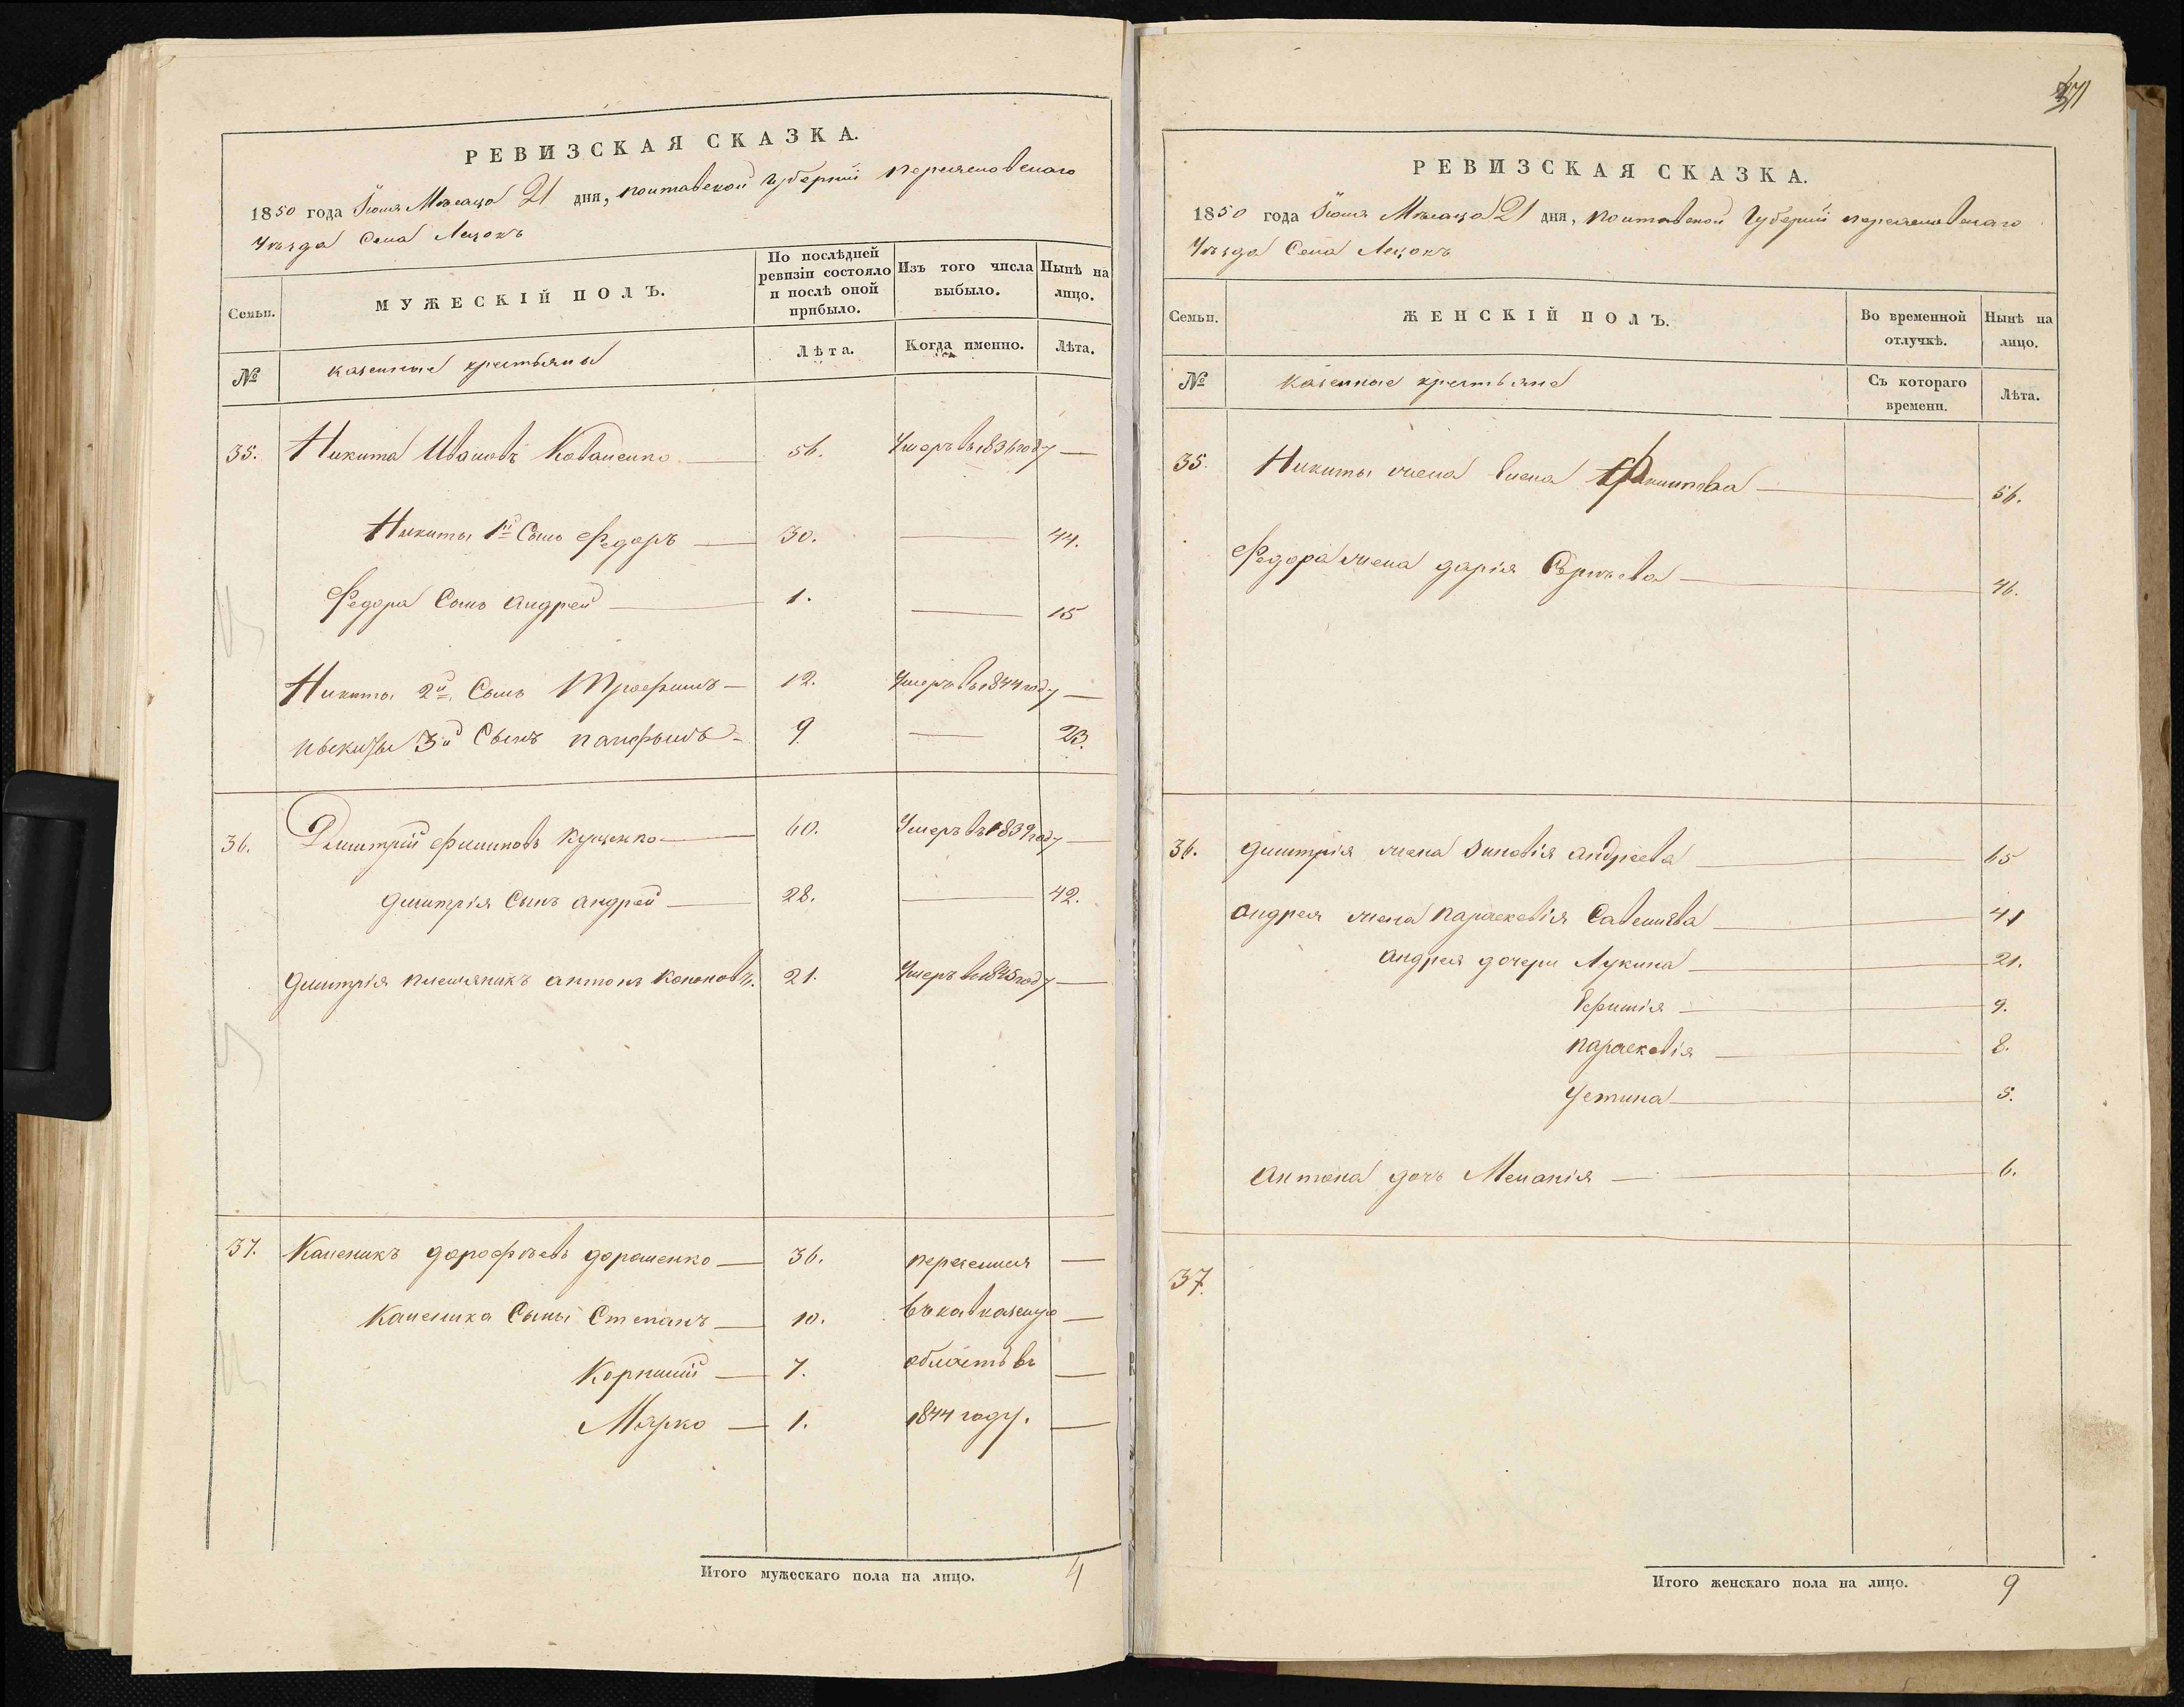 РЕВИЗСКАЯ СКАЗКА.
1850 года Іюля Месяца 21 дня, Полтавской Губерніи Переяславскаго
Уѣзда Села Лецокъ
Семьи.
МУЖЕСКІЙ ПОЛЪ.
По послѣдней ревизіи состояло и послѣ оной прибыло.
Изъ того числа выбыло.
Нынѣ на лицо.
№
казенные крестьяны
Лѣта.
Когда именно.
Лѣта.
35. Никита Ивановъ Коваленко 56. Умеръ въ 1836 году —
Никиты 1й Сынъ Федоръ 30. — 44.
Федора Сынъ Андрей 1. — 15
Никиты 2й Сынъ Трофимъ 12. Умеръ въ 1844 году —
Ныкиты 3й Сынъ Панфылъ 9 — 23.
36. Димитрій Филиповъ Куценко 60. Умеръ въ 1839 году —
Димитрія Сынъ Андрей 28. — 42.
Димитрія племяникъ Антонъ Кононовъ. 21. Умеръ въ 1845 году —
37. Каленикъ Дорофѣевъ Дорошенко 36. переселися —
Каленика Сыны Степанъ 10. въ кавказкую —
Корнилій 7. область въ —
Марко 1. 1844 году. —
Итого мужескаго пола на лицо. 4
371
РЕВИЗСКАЯ СКАЗКА.
1850 года Іюля Месяца 21 дня, Полтавской Губерніи Переяславскаго
Уѣзда Села Лецокъ
Семьи.
ЖЕНСКІЙ ПОЛЪ.
Во временной отлучкѣ.
Нынѣ на лицо.
№
казенные крестьяне
Съ котораго времени.
Лѣта.
35. Никиты жена Елена 56.
Федора жена Дарія Сергѣева 46.
36. Димитрія жена Зиновія Андреева 65
Андрея жена Параскевія Савельева 41
Андрея дочери Лукина 21.
Ефимія 9.
Параскевія 8.
Устина 5.
Антона дочь Меланія 6.
37.
Итого женскаго пола на лицо. 9